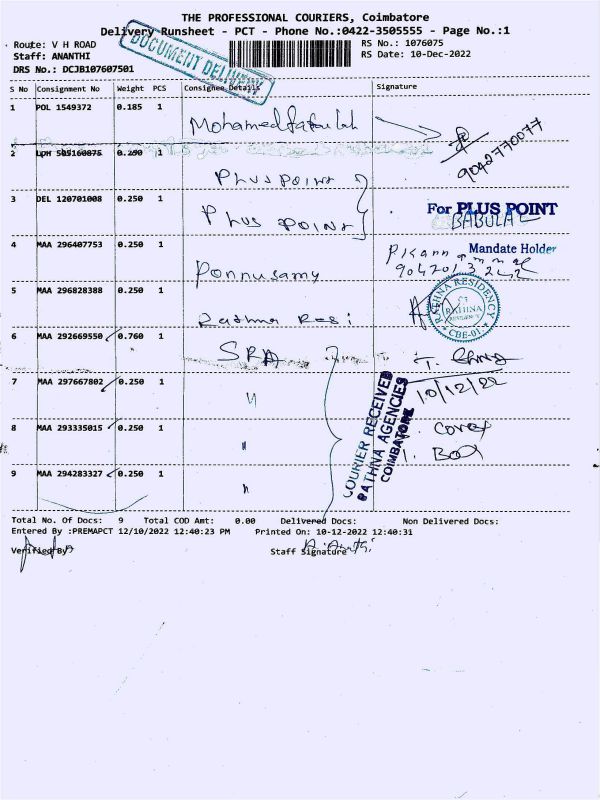 THE PROFESSIONAL COURIERS, Coimbatore
Delivery Runsheet - PCT - Phone No.:0422-3505555 - Page No.:1
Route: V H ROAD
RS No.: 1076075
Staff: ANANTHI
RS Date: 10-Dec-2022
DRS No.: DCJB107607501
DOCUMENT DELIVERY
S No Consignment No Weight PCS Consignee Details Signature
1 POL 1549372 0.185 1
Mohamed
9042770077
2 LPH 505160875 0.290 1
Plus Point
3 DEL 120701008 0.250 1
Plus Point
For PLUS POINT
BABULAL
Mandate Holder
4 MAA 296407753 0.250 1
Ponnusamy
5 MAA 296828388 0.250 1
Rathna Resi
RATHNA RESIDENCY
RATHNA
CBE-01
6 MAA 292669550 0.760 1
SRA
7 MAA 297667802 0.250 1
"
10/12/22
8 MAA 293335015 0.250 1
"
1. Cover
1. Box
9 MAA 294283327 0.250 1
"
COURIER RECEIVED
RATHNA AGENCIES
COIMBATORE
Total No. Of Docs: 9 Total COD Amt: 0.00 Delivered Docs: Non Delivered Docs:
Entered By :PREMAPCT 12/10/2022 12:40:23 PM Printed On: 10-12-2022 12:40:31
Verified By
Staff Signature